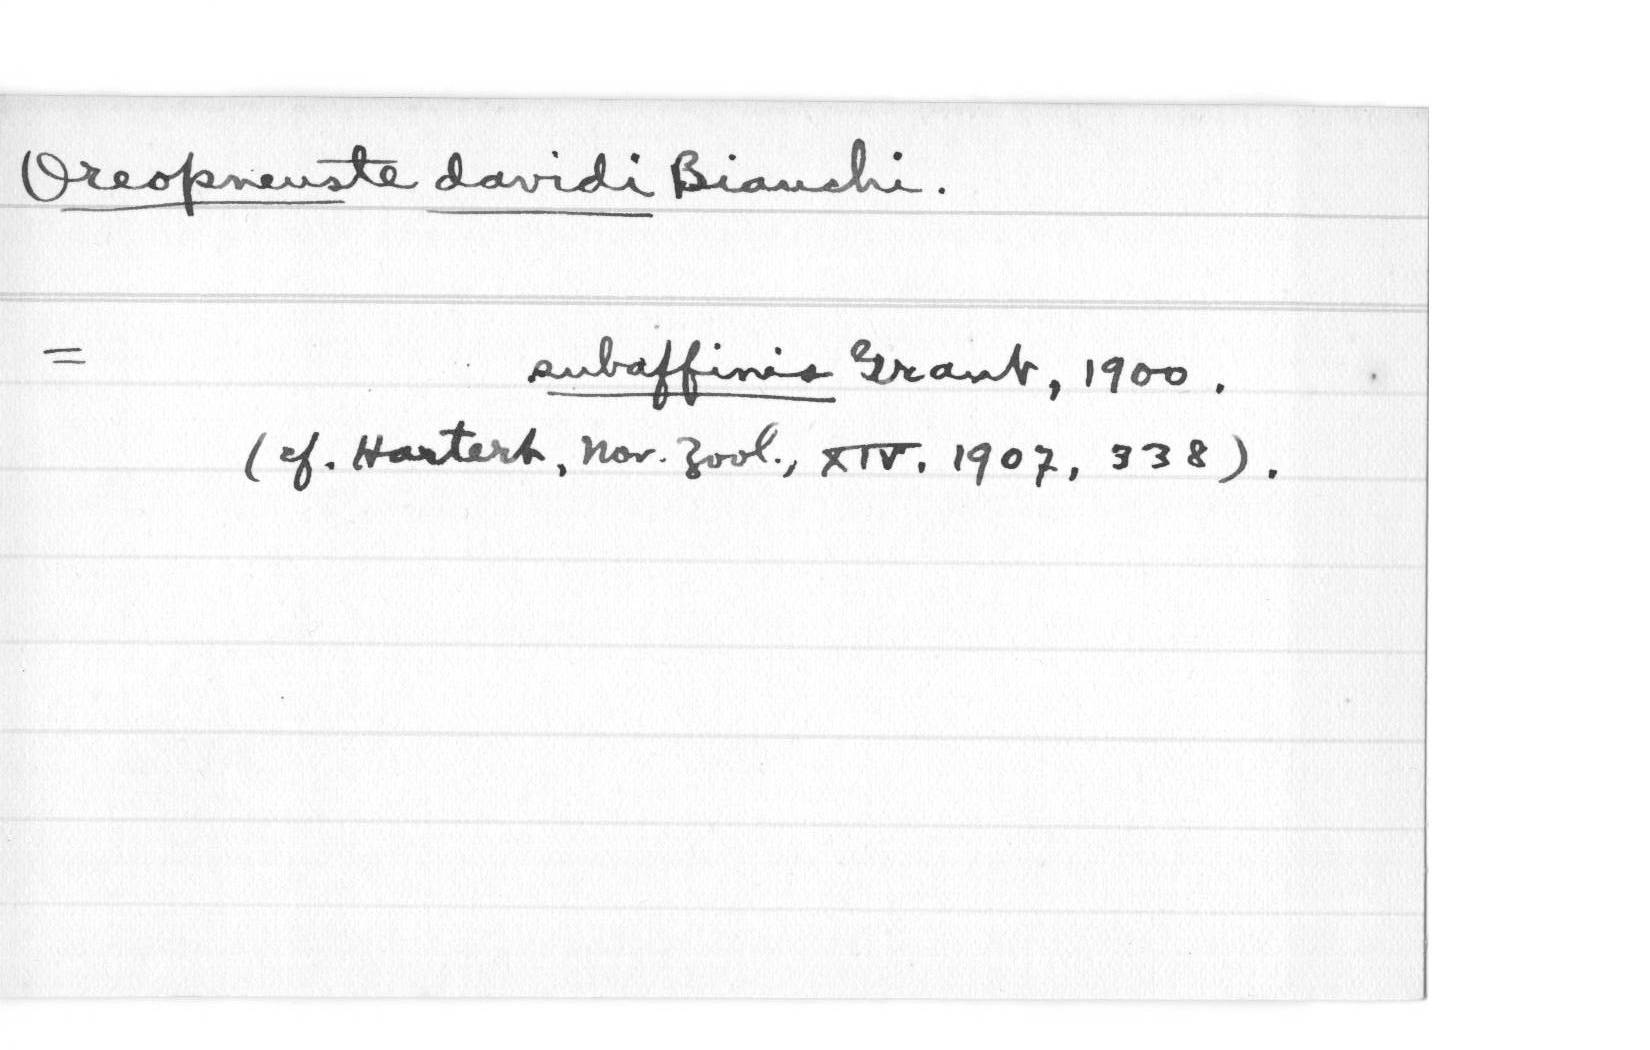 Oreopneuste davidi Bianchi.
= subaffinis Grant, 1900.
(cf. Hartert, Nov. Zool., XIV. 1907, 338).